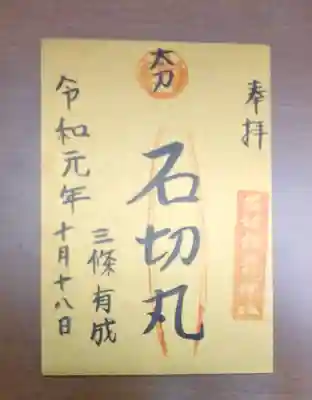 奉拝
太刀
石切丸
三條有成
令和元年十月十八日